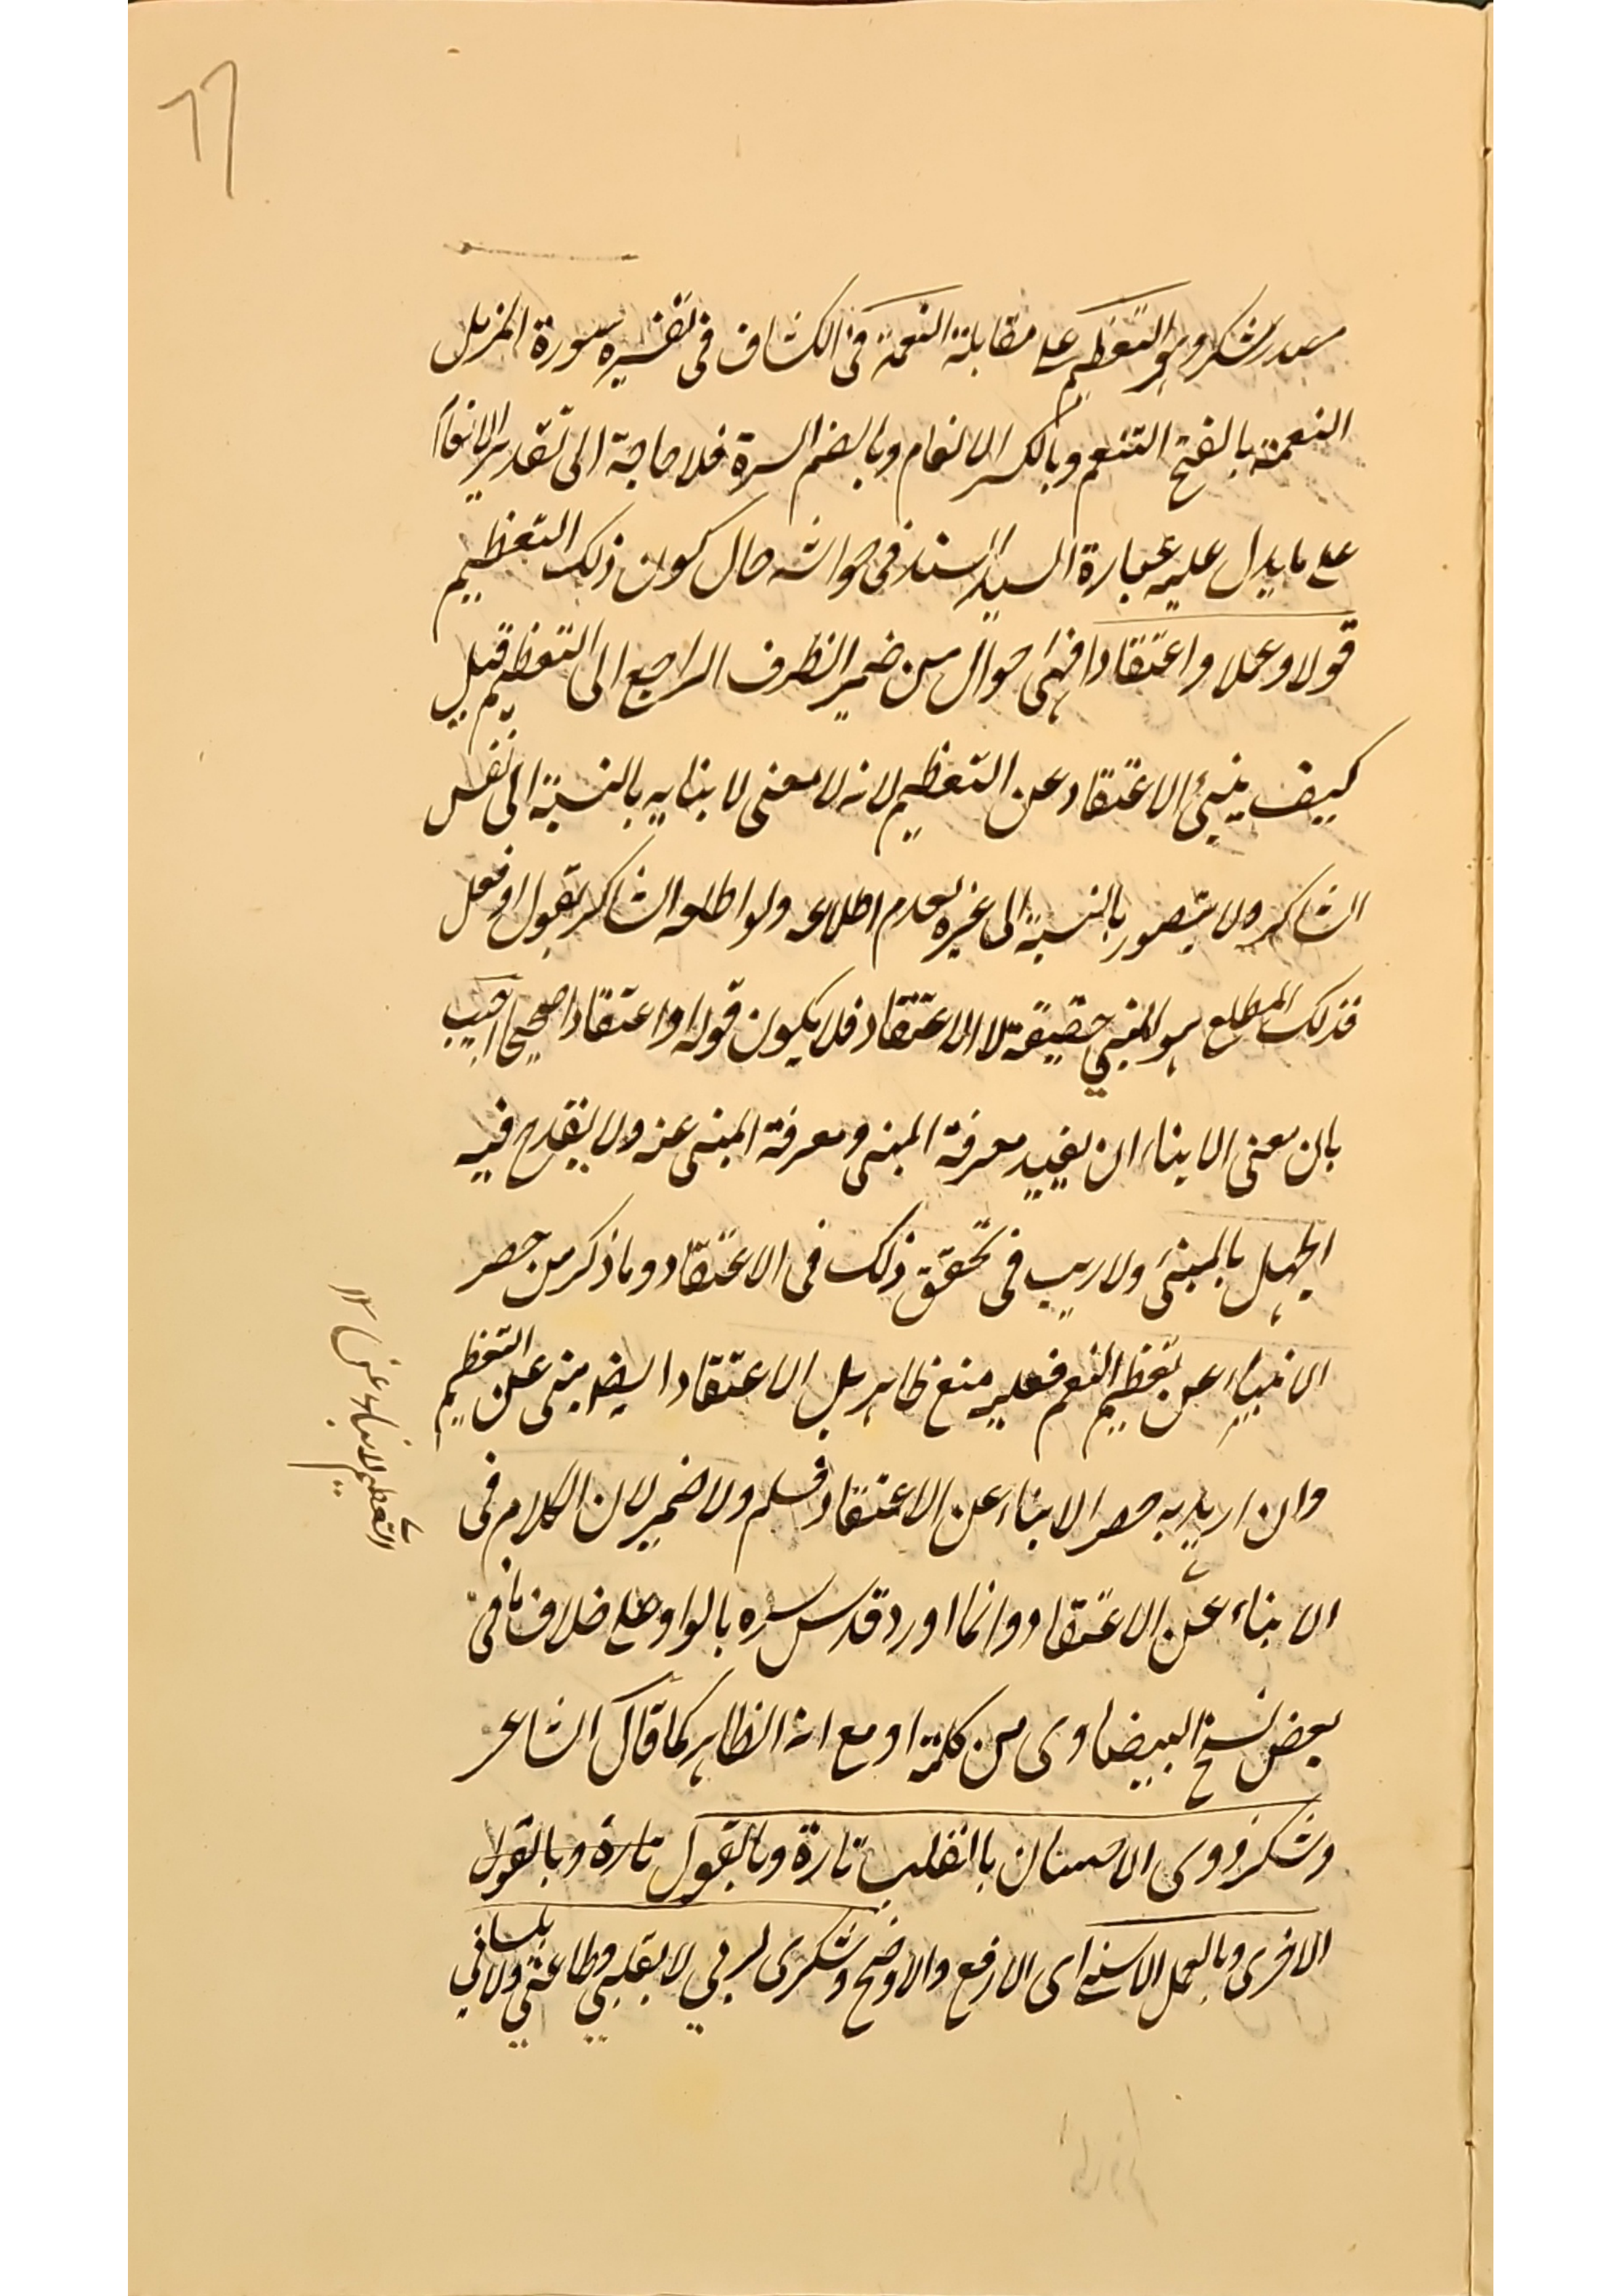 ٦٦
الشكر وهو التعظيم على مقابلة النعمة فى الكشاف فى تفسيره سورة المزمل
النعمة بالفتح التنعم وبالكسر الانعام وبالضم المسرة فلا حاجة الى تقدير الانعام
على ما يدل عليه عبارة السيد السند فى حواشه حال كون ذلك التعظيم
قولا وعملا واعتقادا فهى احوال من ضمير الظرف الراجع الى التعظيم قيل
كيف ينبئ الاعتقاد عن التعظيم لانه لا معنى لانبايه بالنسبة الى نفس
الشاكر ولا يتصور بالنسبة الى غيره لعدم اطلاعه ولو اطلعه الشاكر بقول او فعل
فذلك المطلع هو المنبي حقيقة لا الاعتقاد فلا يكون قوله او اعتقادا صحيحا اجيب
بان معنى الانباء ان يفيد معرفة المنبى ومعرفة المنبى عنه ولا يقدح فيه
الجهل بالمنبئ ولا ريب فى تحقق ذلك فى الاعتقاد وما ذكر من حصر
الانباء عن تعظيم المنعم فعليه منع ظاهر بل الاعتقاد ايضا منبى عن التعظيم
وان اريد به حصر الانباء عن الاعتقاد فسلم ولا ضير لان الكلام فى
الانباء عن الاعتقاد وانما اورد قدس سره بالواو على خلاف ما فى
بعض نسخ البيضاوى من كلمة او مع انه الظاهر كما قال الشاعر
وشكر ذوى الاحسان بالقلب تارة وبالقول تارة وبالقول
الاخرى وبالعمل الاسنى اى الارفع والاوضح وشكرى لربي لا بقلبي وطاعتي ولا بلساني
التعظيم لانباء عن ١٢